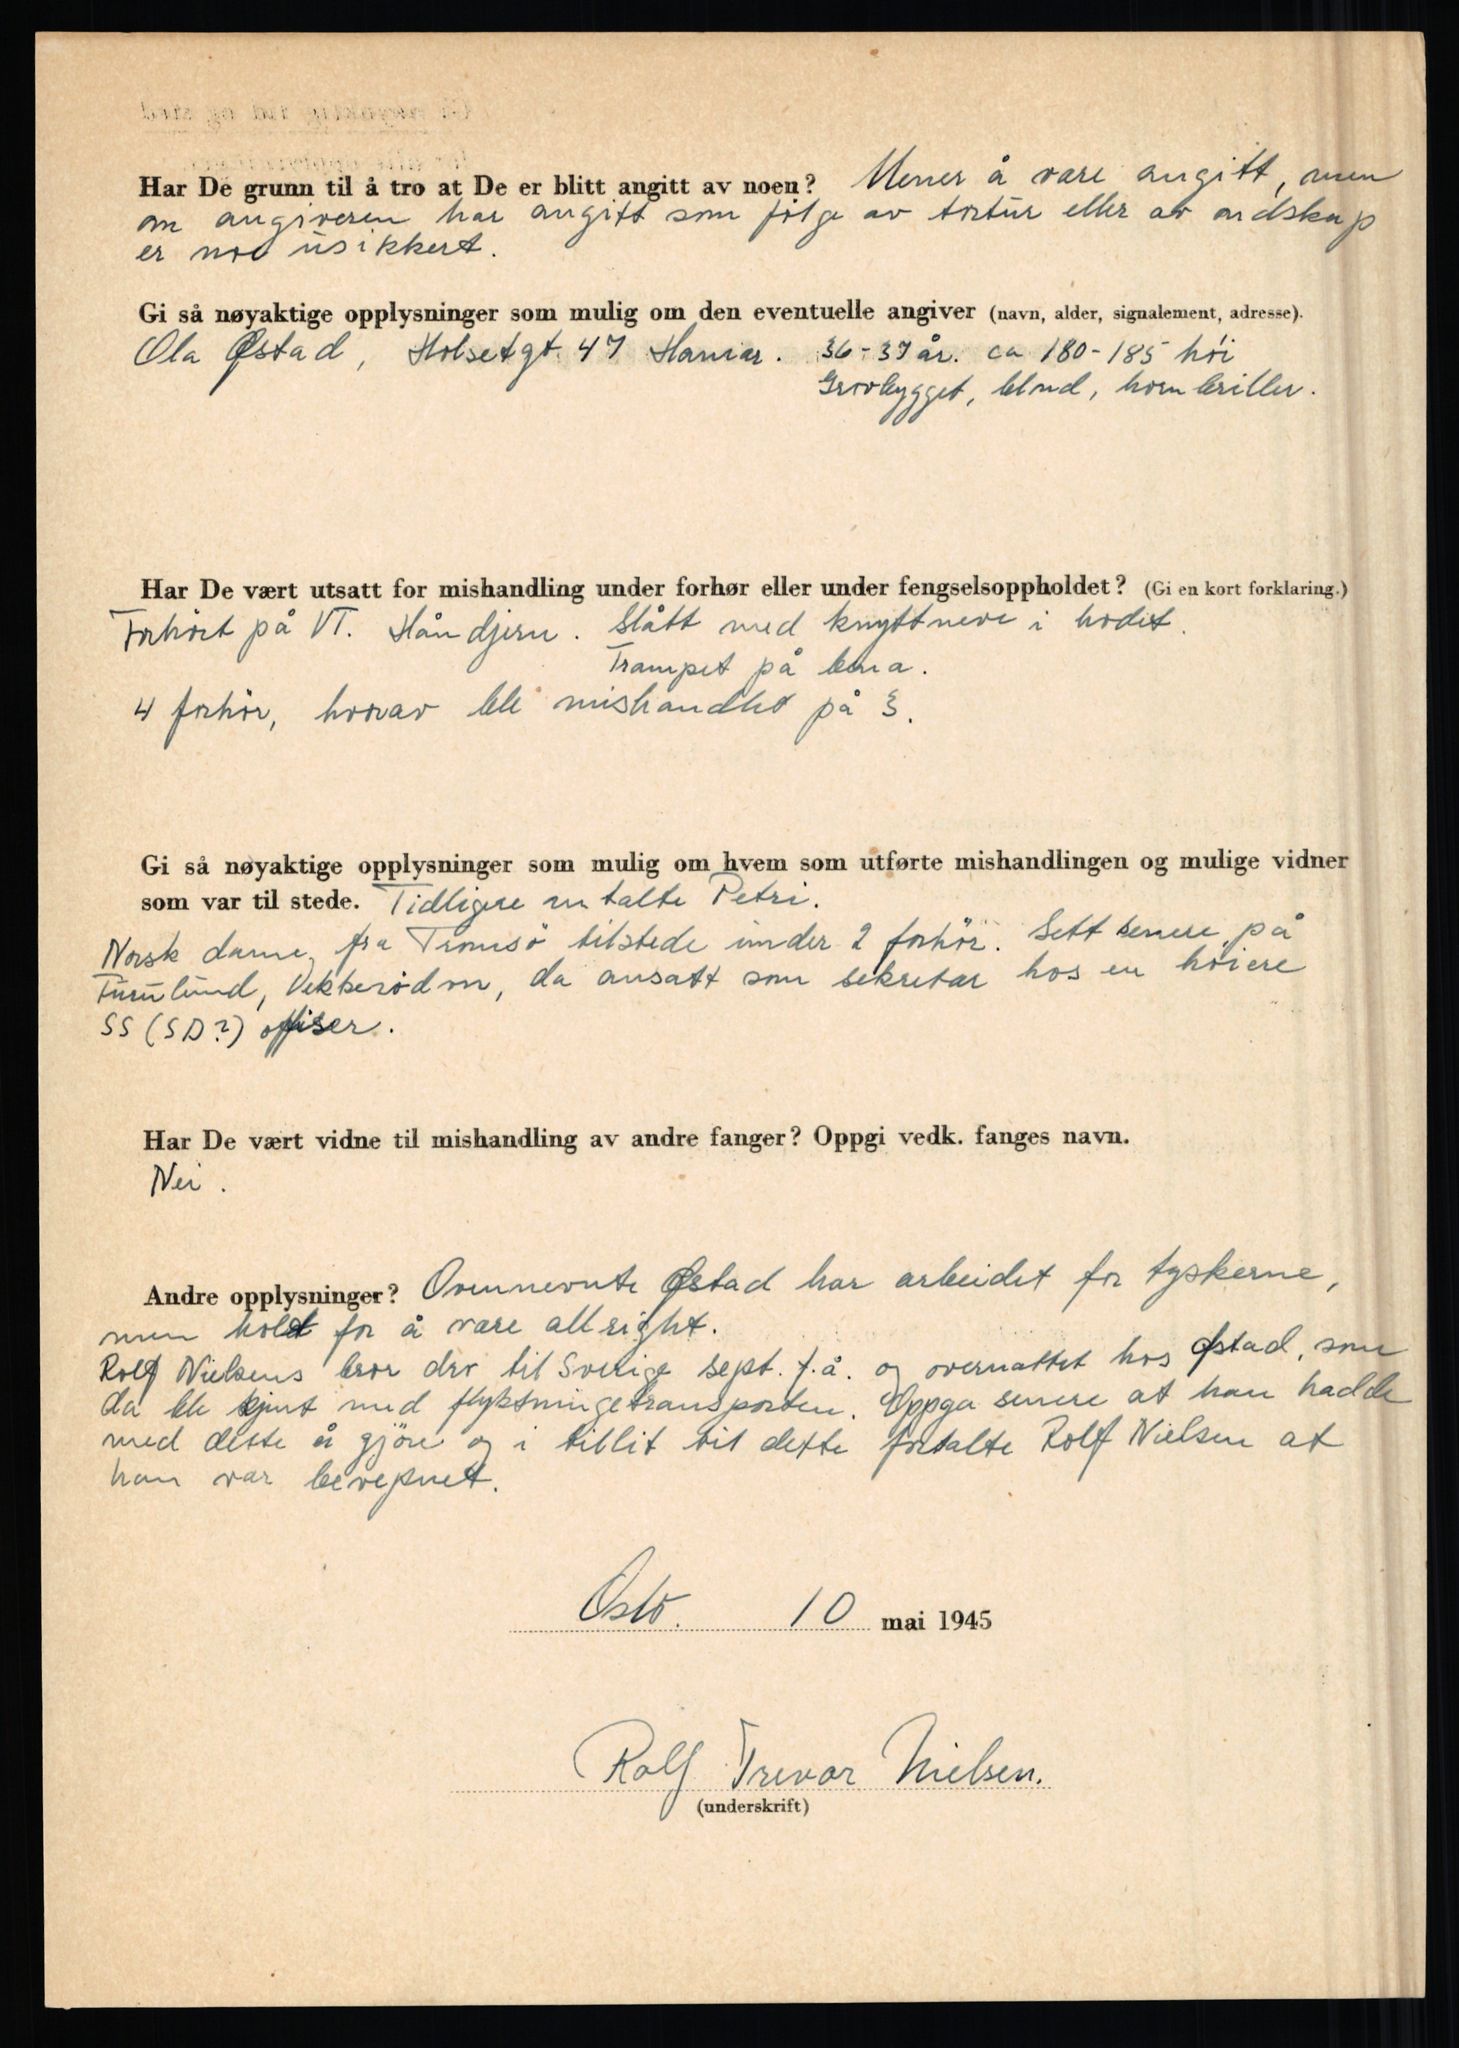 Har De grunn til å tro at De er blitt angitt av noen? Mener å være angitt, men
om angiveren har angitt som følge av tortur eller av ondskap
er noe usikkert.
Gi så nøyaktige opplysninger som mulig om den eventuelle angiver (navn, alder, signalement, adresse).
Ola Østad, Holsetgt. 47 Hamar. 36-37 år. ca 180-185 höi
Grovbygget, blond, hornbriller.
Har De vært utsatt for mishandling under forhør eller under fengselsoppholdet? (Gi en kort forklaring.)
Forhört på VT. Håndjern. Slått med knyttneve i hodet.
Trampet på bena.
4 forhör, hvorav ble mishandlet på 3.
Gi så nøyaktige opplysninger som mulig om hvem som utførte mishandlingen og mulige vidner
som var til stede. Tidligere omtalte Petri.
Norsk dame, fra Tromsö tilstede under 2 forhör. Sett senere på
Furulund, Vekkerödvn, da ansatt som sekretær hos en höiere
SS (SD?) offiser.
Har De vært vidne til mishandling av andre fanger? Oppgi vedk. fanges navn.
Nei.
Andre opplysninger? Ovennevnte Østad har arbeidet for tyskerne,
men holdt for å være allright.
Rolf Nielsens bror drv til Sverige sept. f.å. og overnattet hos Østad, som
da ble kjent med flyktningetransporten. Oppga senere at han hadde
med dette å gjöre og i tillit til dette fortalte Rolf Nielsen at
han var bevepnet.
Oslo. 10 mai 1945
Rolf Trevor Nielsen.
(underskrift)